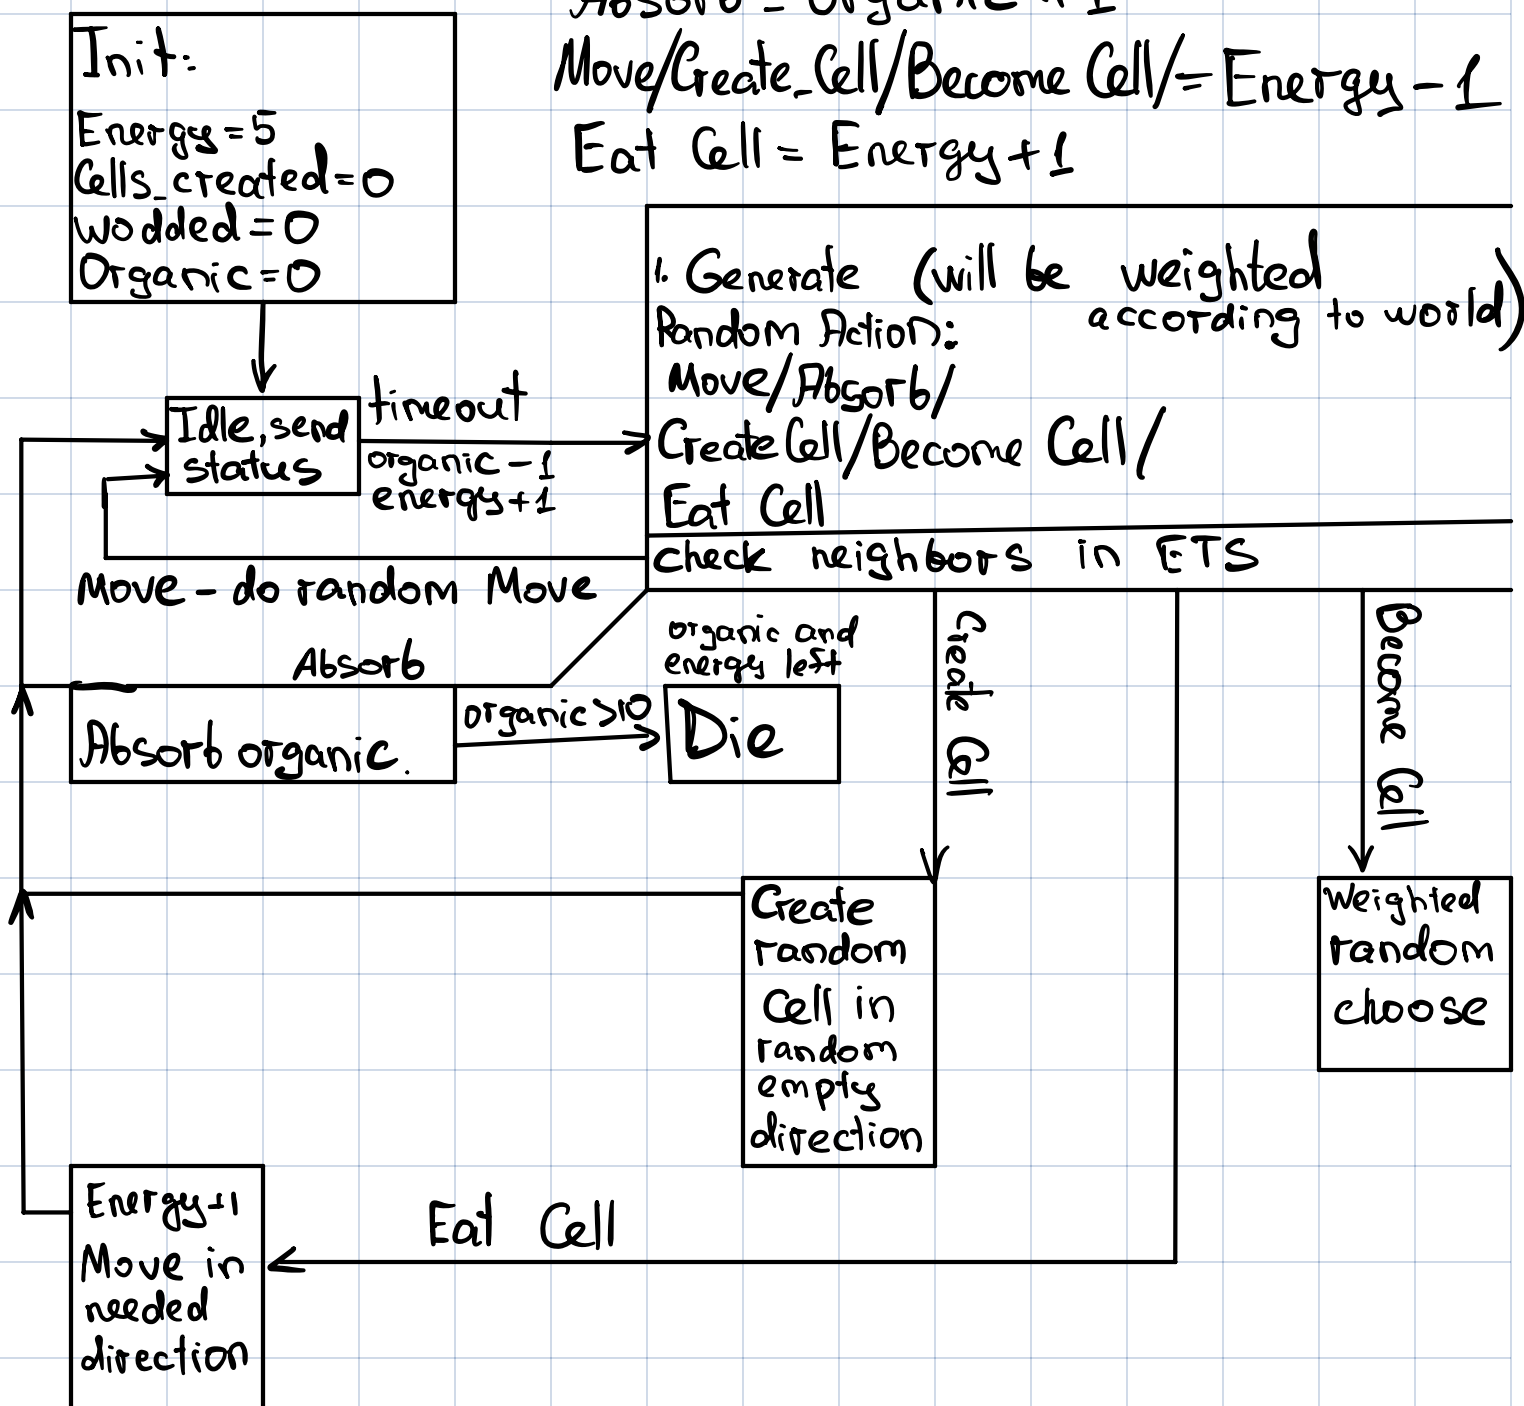 Absorb = Organic + 1
Move/Create_Cell/Become Cell/=Energy-1
Eat Cell = Energy+1
Init:
Energy=5
Cells_created=0
wodded=0
Organic=0
1. Generate (will be weighted
according to world)
Random Action:
Move/Absorb/
Create Cell/Become Cell/
Eat Cell
check neighbors in ETS
timeout
organic-1
energy+1
Idle, send
status
Move - do random Move
Absorb
Absorb organic.
organic>10
organic and
energy left
Die
Create Cell
Become Cell
Create
random
Cell in
random
empty
direction
Weighted
random
choose
Eat Cell
Energy+1
Move in
needed
direction